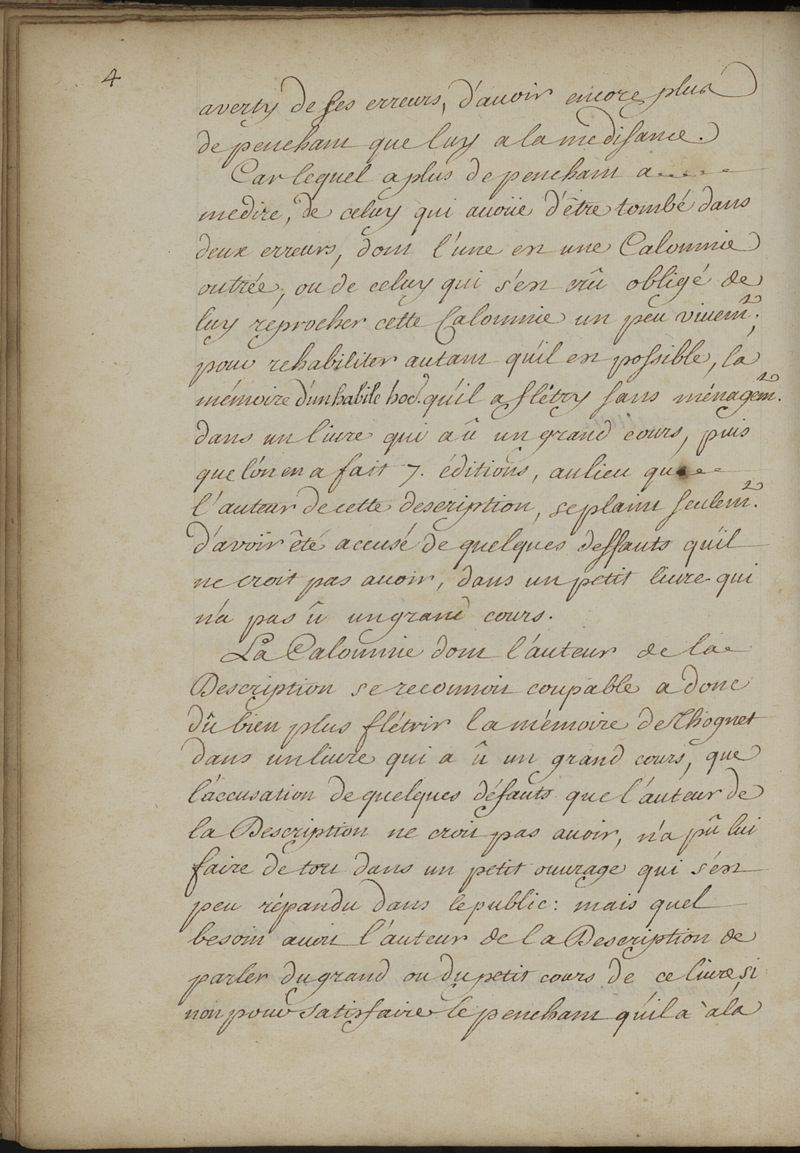 4
averty de ses erreurs, d'avoir encore plus
de penchant que luy a la medisance.
Car lequel a plus de penchant a....
medire, de celuy qui avoüe d'être tombé dans
deux erreurs, dont l'une est une Calomnie
outrée, ou de celuy qui s'est crû obligé de
luy reprocher cette Calomnie un peu vivemt.
pour rehabiliter autant qu'il est possible, la
mémoire d'un habile hoe. qu'il a flétry sans ménagemt.
dans un livre qui a û un grand cours, puis
que l'on en a fait 7. éditions, au lieu que
l'auteur de cette description, se plaint seulemt.
d'avoir été accusé de quelques deffauts qu'il
ne croit pas avoir, dans un petit livre qui
n'a pas û un grand cours.
La Calomnie dont l'auteur de la
Description se reconnoit coupable a donc
dû bien plus flétrir la mémoire de Thognet
dans un livre qui a û un grand cours, que
l'accusation de quelques défauts que l'auteur de
la Description ne croit pas avoir, n'a pû lui
faire de tort dans un petit ouvrage qui s'est
peu répandu dans le public: mais quel
besoin avoit l'auteur de la Description de
parler du grand ou du petit cours de ce livre, si
non pour satisfaire le penchant qu'il a à la